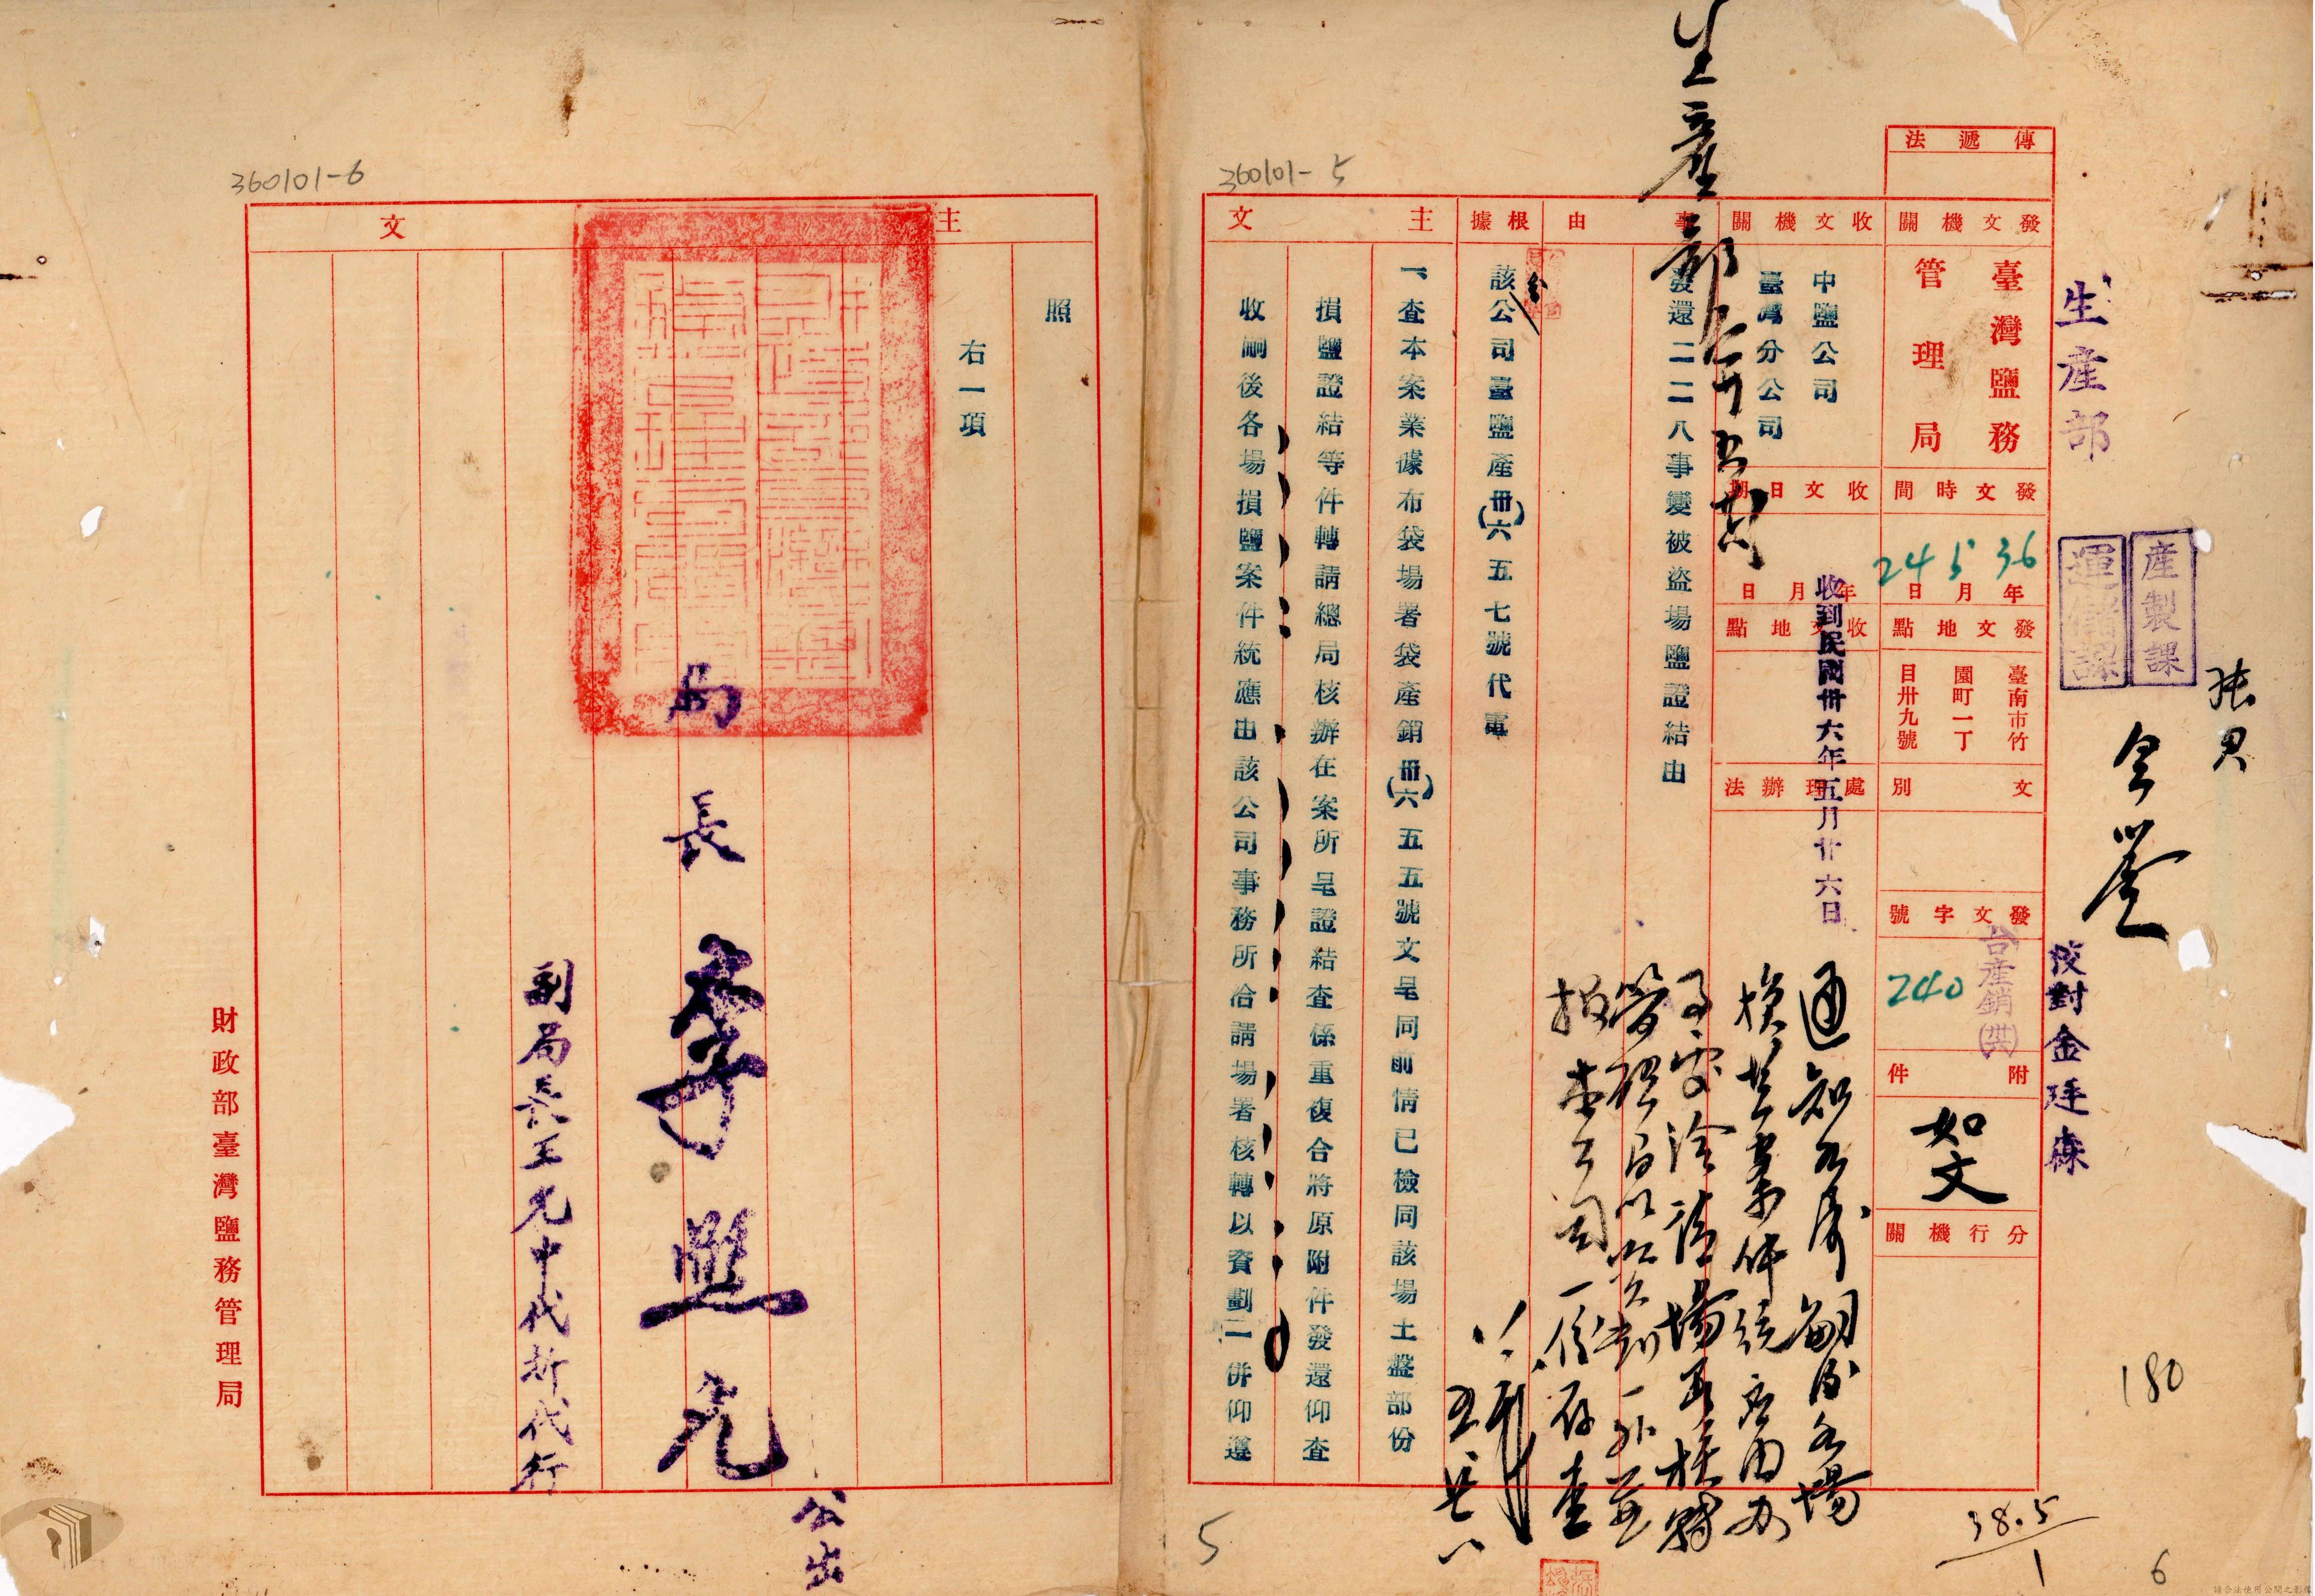 360101-5
傳遞法
生產部
產製課
運儲課
張君
全卷
校對金廷森
發文機關
臺灣鹽務
管理局
發文時間
36年5月24日
發文地點
臺南市竹
園町一丁
目卅九號
文別
發文字號
台產銷
240
附件
如文
分行機關
收文機關
中鹽公司
臺灣分公司
收文日期
年月日
收到民國卅六年五月廿六日
收文地點
處理辦法
生產部
通知各場嗣後各場
損鹽案件統應由
洽請場署核轉
一併
報本公司一份存查
事由
發還二二八事變被盜場鹽證結由
根據
該公司臺鹽產(卅六)五七號代電
主文
一、查本案業據布袋場署袋產銷(卅六)五五號文呈同前情已檢同該場土盤部份
損鹽證結等件轉請總局核辦在案所呈證結查係重複合將原附件發還仰查
收嗣後各場損鹽案件統應由該公司事務所洽請場署核轉以資劃一併仰遵
180
38.5
1
6
5
360101-6
主文
照
右一項
局長李熙元
公出
副局長王允中代拆代行
財政部臺灣鹽務管理局